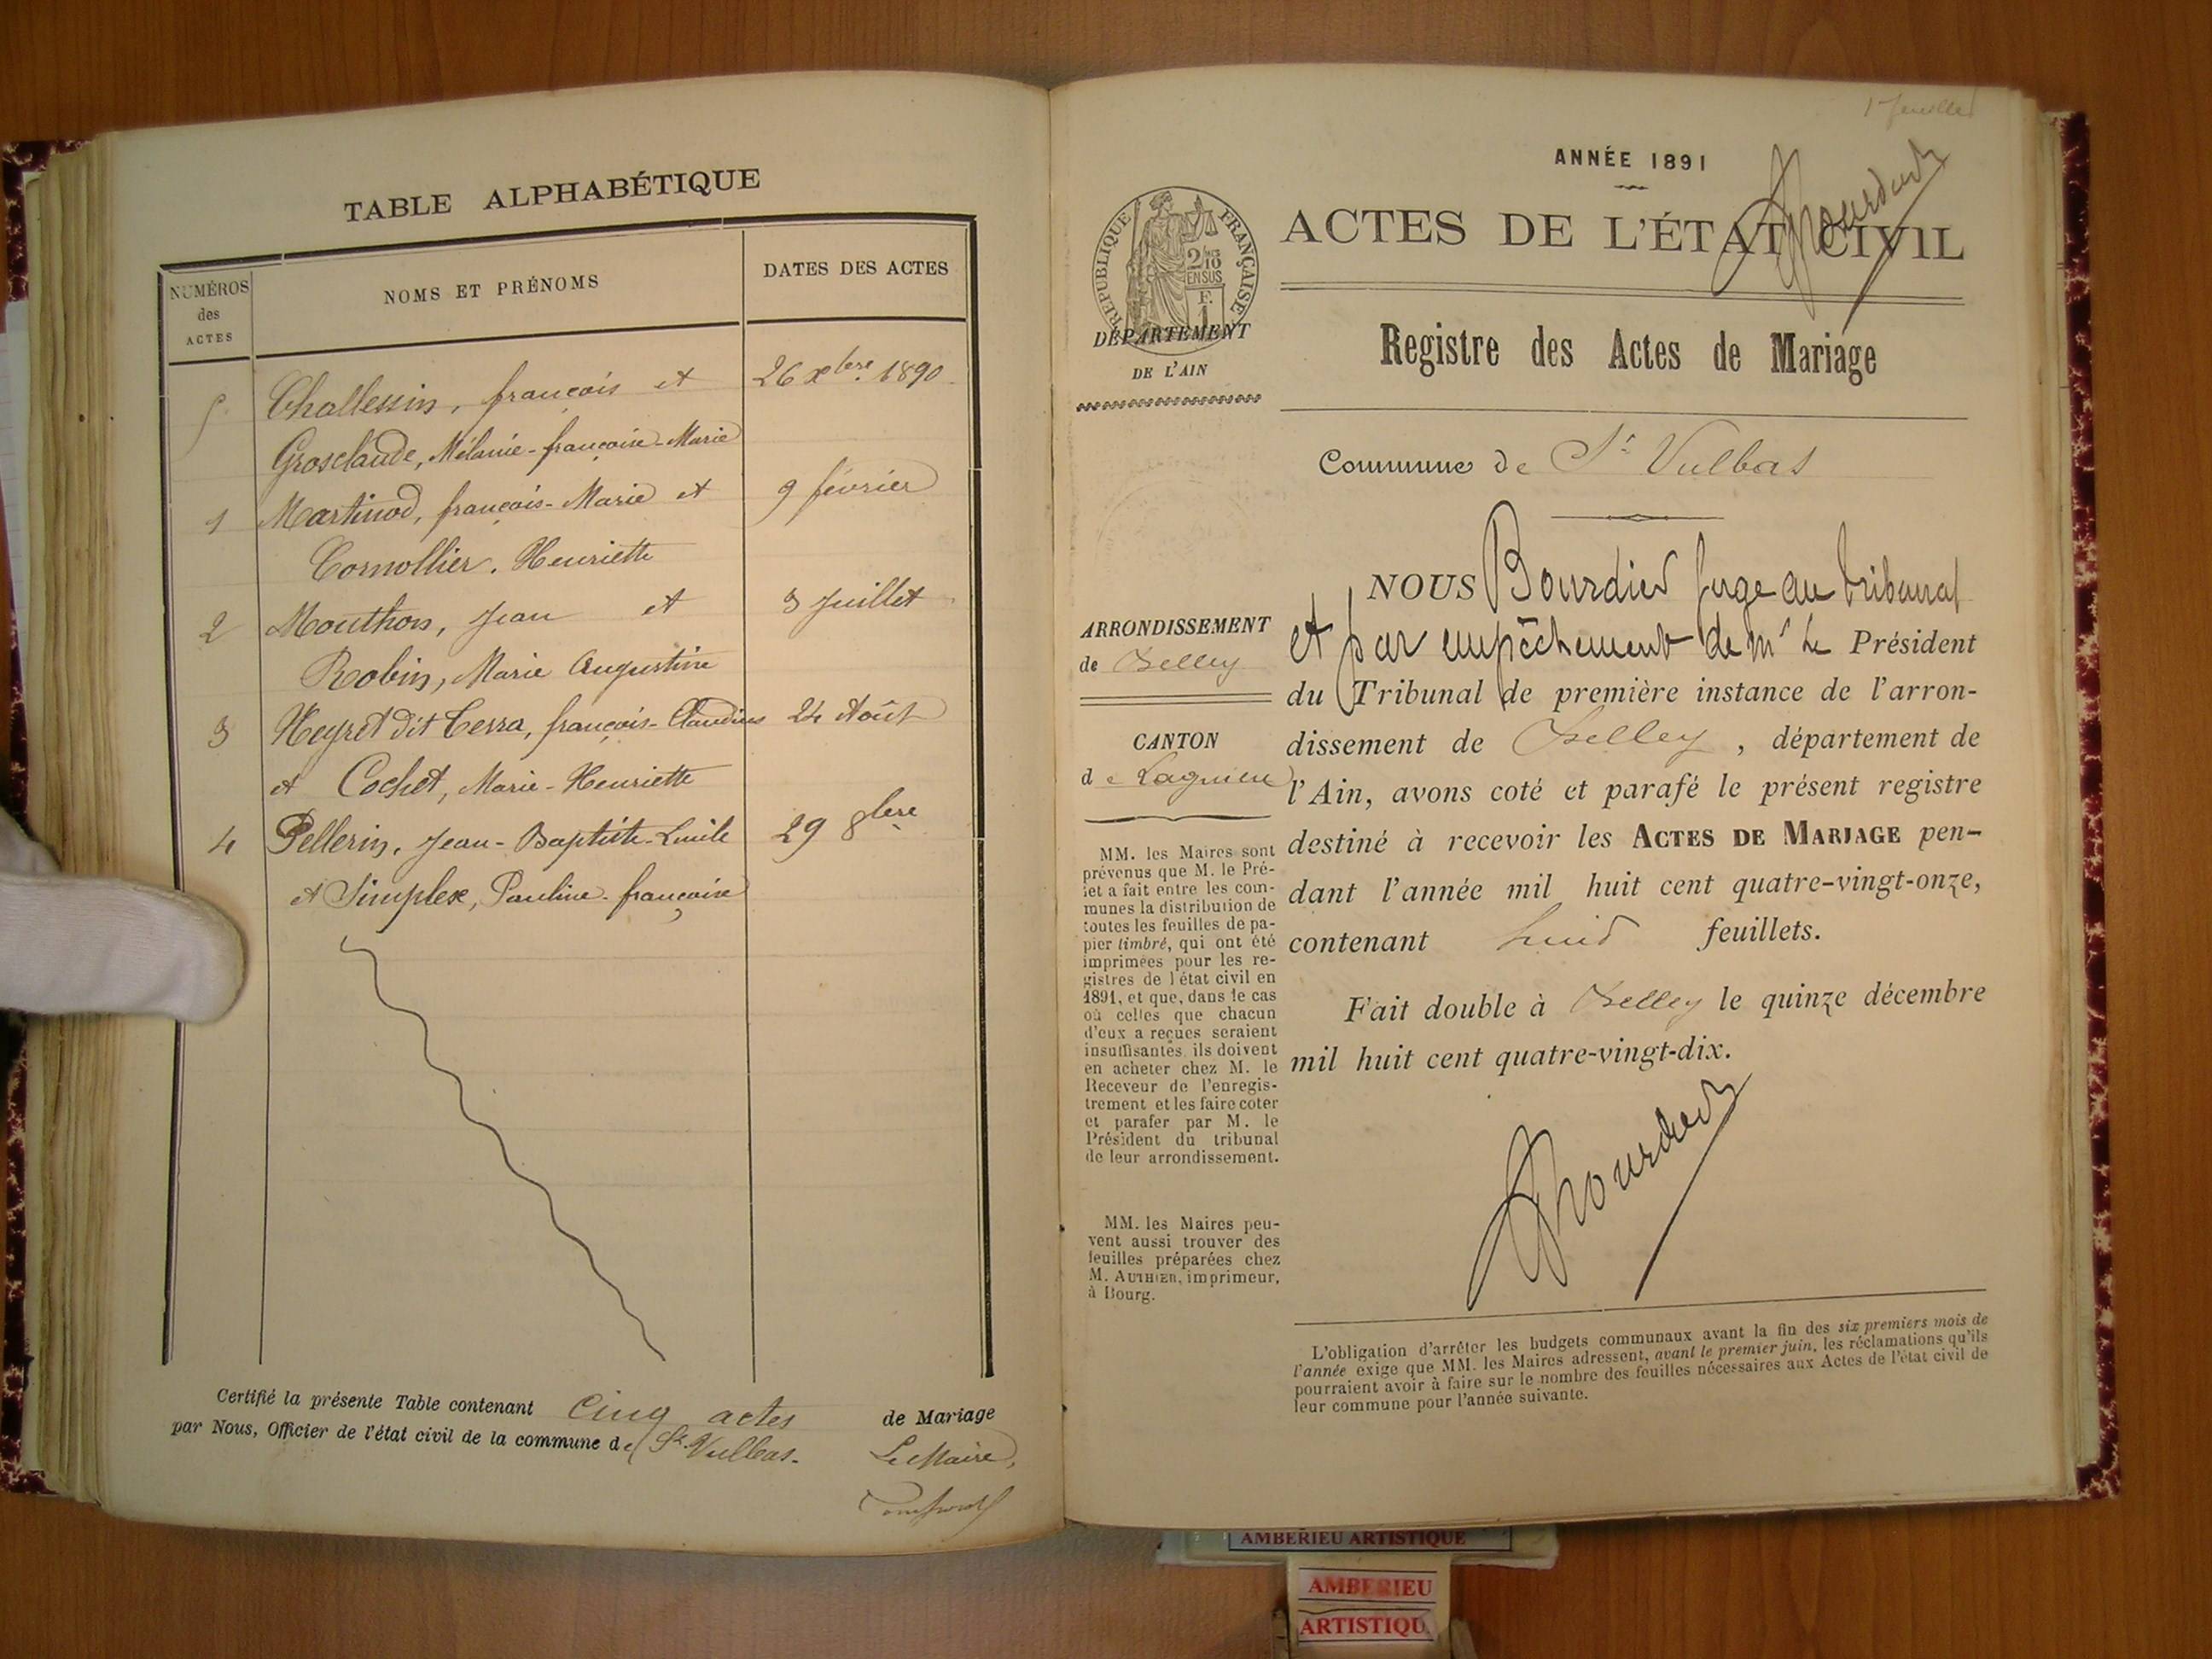 TABLE ALPHABÉTIQUE
NUMÉROS
des
ACTES
NOMS ET PRÉNOMS
DATES DES ACTES
5 Challessin, françois et 26 Xbre. 1890
Grosclaude, Mélanie-françoise-Marie
1 Martinod, françois-Marie et 9 février
Cornollier, Henriette
2 Mouthon, Jean et 3 Juillet
Robin, Marie Augustine
3 Neyret dit Cerra, françois-Claudius 24 Août
et Cochet, Marie-Henriette
4 Pellerin, Jean-Baptiste-Emile 29 8bre
et Simplex, Pauline-françoise
Certifié la présente Table contenant Cinq actes de Mariage
par Nous, Officier de l'état civil de la commune de St Vulbas.
Le Maire,
1r feuillet
ANNÉE 1891
ACTES DE L'ÉTAT CIVIL
RÉPUBLIQUE FRANÇAISE
2/10
EN SUS
F.
1
DÉPARTEMENT
DE L'AIN
Registre des Actes de Mariage
Commune de St Vulbas
NOUS Bourdier Juge au tribunal
et par empêchement de Mr le Président
du Tribunal de première instance de l'arron-
dissement de Belley, département de
l'Ain, avons coté et parafé le présent registre
destiné à recevoir les ACTES DE MARIAGE pen-
dant l'année mil huit cent quatre-vingt-onze,
contenant huit feuillets.
Fait double à Belley le quinze décembre
mil huit cent quatre-vingt-dix.
Bourdier
ARRONDISSEMENT
de Belley
CANTON
de Lagnieu
MM. les Maires sont
prévenus que M. le Pré-
fet a fait entre les com-
munes la distribution de
toutes les feuilles de pa-
pier timbré, qui ont été
imprimées pour les re-
gistres de l'état civil en
1891, et que, dans le cas
où celles que chacun
d'eux a reçues seraient
insuffisantes, ils doivent
en acheter chez M. le
Receveur de l'enregis-
trement et les faire coter
et parafer par M. le
Président du tribunal
de leur arrondissement.
MM. les Maires peu-
vent aussi trouver des
feuilles préparées chez
M. AUTHIER, imprimeur,
à Bourg.
L'obligation d'arrêter les budgets communaux avant la fin des six premiers mois de
l'année exige que MM. les Maires adressent, avant le premier juin, les réclamations qu'ils
pourraient avoir à faire sur le nombre des feuilles nécessaires aux Actes de l'état civil de
leur commune pour l'année suivante.
AMBERIEU ARTISTIQUE
AMBERIEU
ARTISTIQU